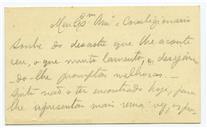 Meu Exmo Amo e Correligionario
Soube do desastre que lhe aconte
ceu, o que muito lamento, e desejan
do-lhe promptas melhoras. -
Sinto não o ter encontrado hoje, para
lhe apresentar mais